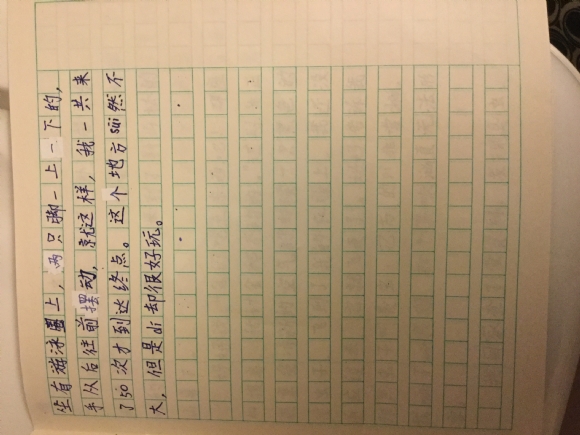 坐在游泳圈上,两只脚一上一下的,
手从后往前摆动,就这样,我一共来
了50次才到达终点。这个地方süi然不
大,但是di却很好玩。